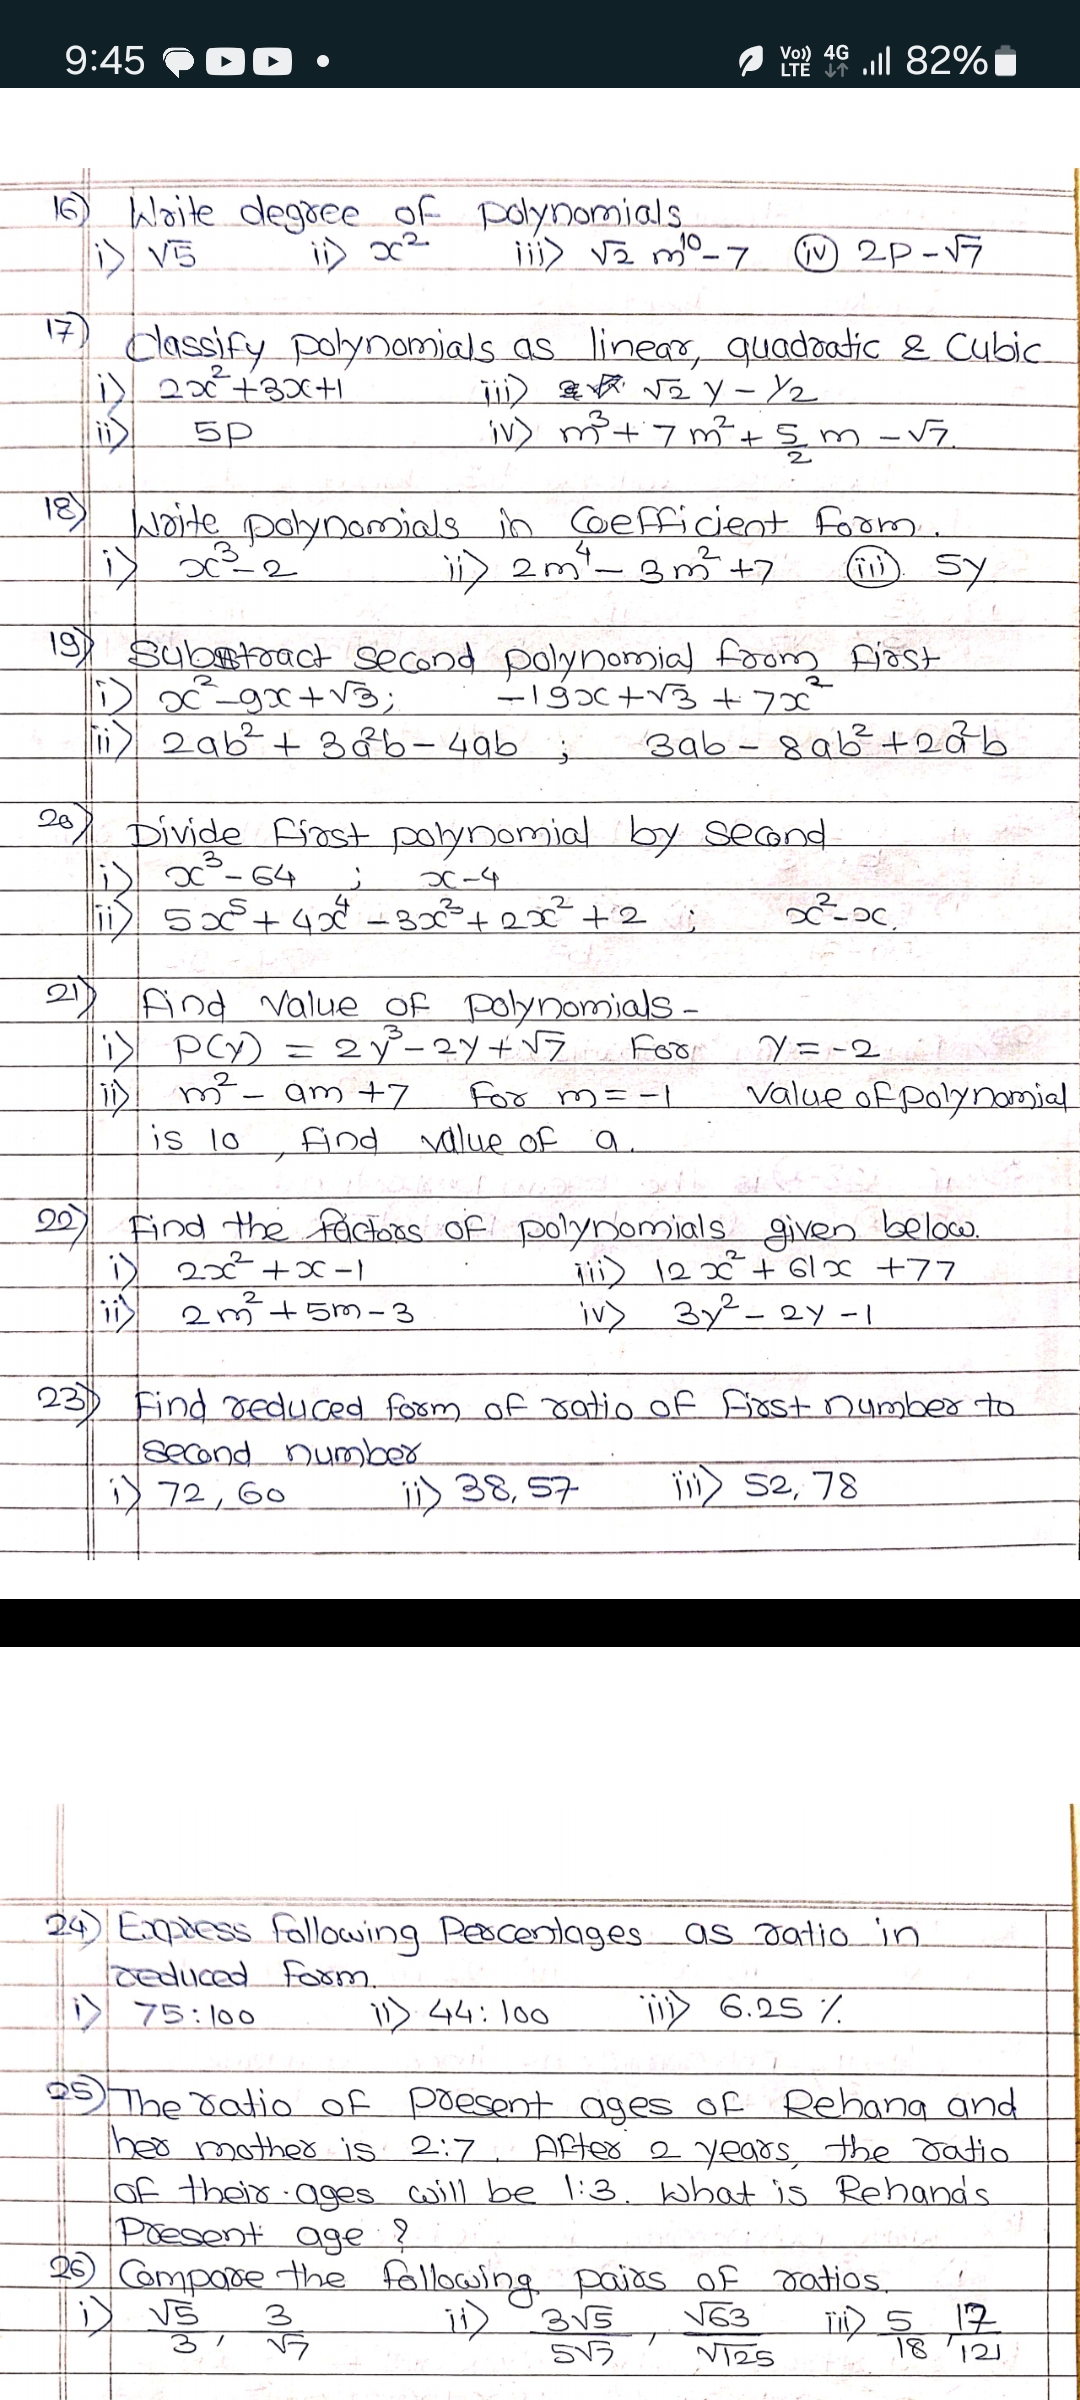 9:45 Vo)) LTE 4G 82%
16) Write degree of polynomials
i) √5 ii) x² iii) √2 m¹⁰-7 (iv) 2p-√7
17) Classify polynomials as linear, quadratic & Cubic
i) 2x²+3x+1 iii) √2 y - 1/2
ii) 5p iv) m³+7m²+5/2 m -√7
18) Write polynomials in Coefficient form.
i) x³-2 ii) 2m⁴-3m²+7 (iii). 5y
19) Substract second polynomial from first
i) x²-9x+√3; -19x+√3 + 7x²
ii) 2ab² + 3a²b - 4ab ; 3ab - 8ab² + 2a²b
20) Divide first polynomial by second
i) x³-64 ; x-4
ii) 5x⁵+4x⁴-3x³+2x²+2 ; x²-x.
21) Find Value of polynomials -
i) P(y) = 2y³-2y+√7 For y = -2
ii) m² - am +7 for m = -1 value of polynomial
is 10, find value of a.
22) Find the factors of polynomials given below.
i) 2x²+x-1 iii) 12x²+61x +77
ii) 2m²+5m-3 iv) 3y²-2y-1
23) Find reduced form of ratio of first number to
second number
i) 72, 60 ii) 38, 57 iii) 52, 78
24) Express following Percentages as ratio in
reduced form.
i) 75:100 ii) 44:100 iii) 6.25 %.
25) The ratio of present ages of Rehana and
her mother is 2:7. After 2 years, the ratio
of their ages will be 1:3. What is Rehana's
Present age ?
26) Compare the following pairs of ratios.
i) √5/3, 3/√7 ii) 3√5/5√7, √63/√125 iii) 5/18, 17/121